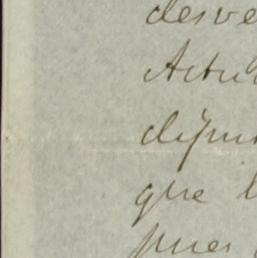 desve
Actu
dejun
que l
pues